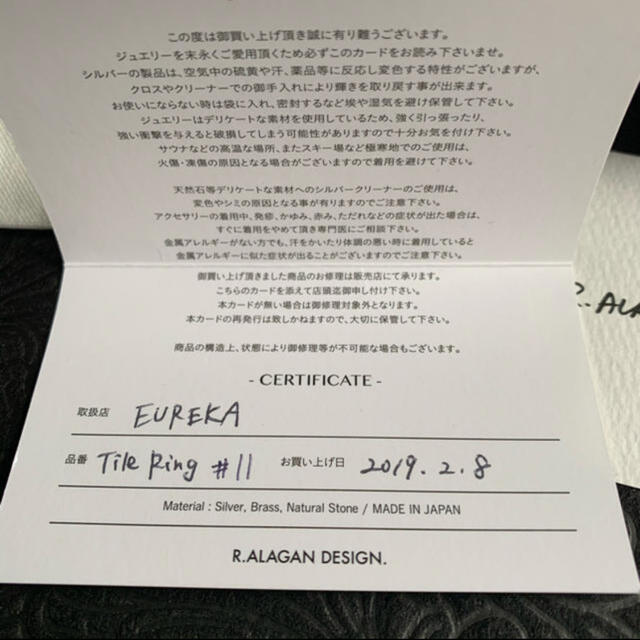 この度は御買い上げ頂き誠に有り難うございます。
ジュエリーを末永くご愛用頂くため必ずこのカードをお読み下さいませ。
シルバーの製品は、空気中の硫黄や汗、薬品等に反応し変色する特性がございますが、
クロスやクリーナーでの御手入れにより輝きを取り戻す事が出来ます。
お使いにならない時は袋に入れ、密封するなど埃や湿気を避け保管して下さい。
ジュエリーはデリケートな素材を使用しているため、強く引っ張ったり、
強い衝撃を与えると破損してしまう可能性がありますので十分お気を付け下さい。
サウナなどの高温な場所、またスキー場など極寒地でのご使用は、
火傷・凍傷の原因となる場合がございますので着用を避けて下さい。
天然石等デリケートな素材へのシルバークリーナーのご使用は、
変色やシミの原因となる事が有りますのでご注意下さい。
アクセサリーの着用中、発疹、かゆみ、赤み、ただれなどの症状が出た場合は、
すぐに着用をやめて頂き専門医にご相談下さい。
金属アレルギーがない方でも、汗をかいたり体調の悪い時に着用していると
金属アレルギーに似た症状が出ることがございますのでご注意下さい。
御買い上げ頂きました商品のお修理は販売店にて承ります。
こちらのカードを添えて店頭迄御申し付け下さい。
本カードが無い場合は御修理対象外となります。
本カードの再発行は致しかねますので、大切に保管して下さい。
商品の構造上、状態により御修理等が不可能な場合もございます。
- CERTIFICATE -
取扱店 EUREKA
品番 Tile Ring #11 お買い上げ日 2019.2.8
Material : Silver, Brass, Natural Stone / MADE IN JAPAN
R.ALAGAN DESIGN.